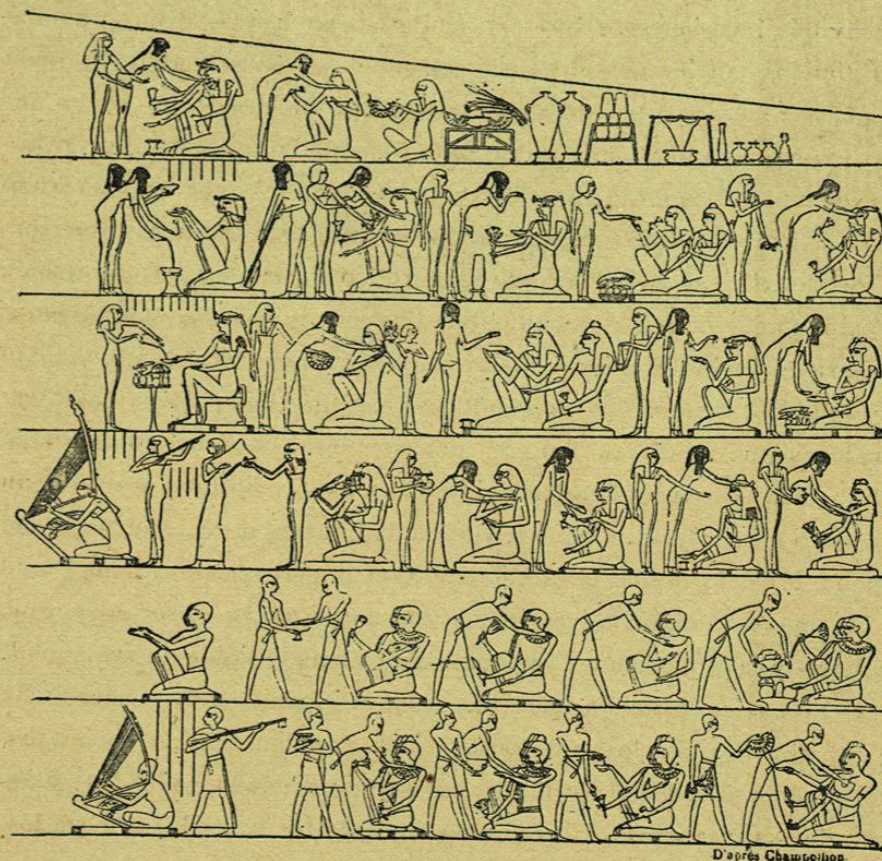 D'après Champollion